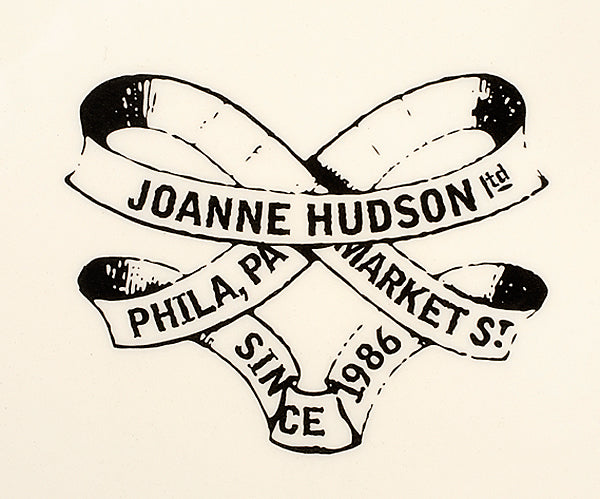 JOANNE HUDSON ltd
PHILA, PA
MARKET ST.
SINCE 1986